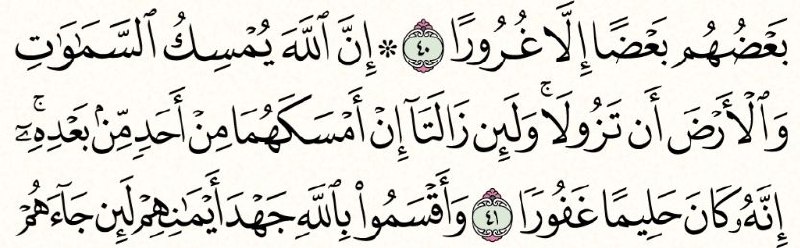 بَعْضُهُم بَعْضًا إِلَّا غُرُورًا ٤٠ ۞ إِنَّ ٱللَّهَ يُمْسِكُ ٱلسَّمَٰوَٰتِ
وَٱلْأَرْضَ أَن تَزُولَا ۚ وَلَئِن زَالَتَآ إِنْ أَمْسَكَهُمَا مِنْ أَحَدٍ مِّنۢ بَعْدِهِۦٓ ۚ
إِنَّهُۥ كَانَ حَلِيمًا غَفُورًا ٤١ وَأَقْسَمُوا۟ بِٱللَّهِ جَهْدَ أَيْمَٰنِهِمْ لَئِن جَآءَهُمْ